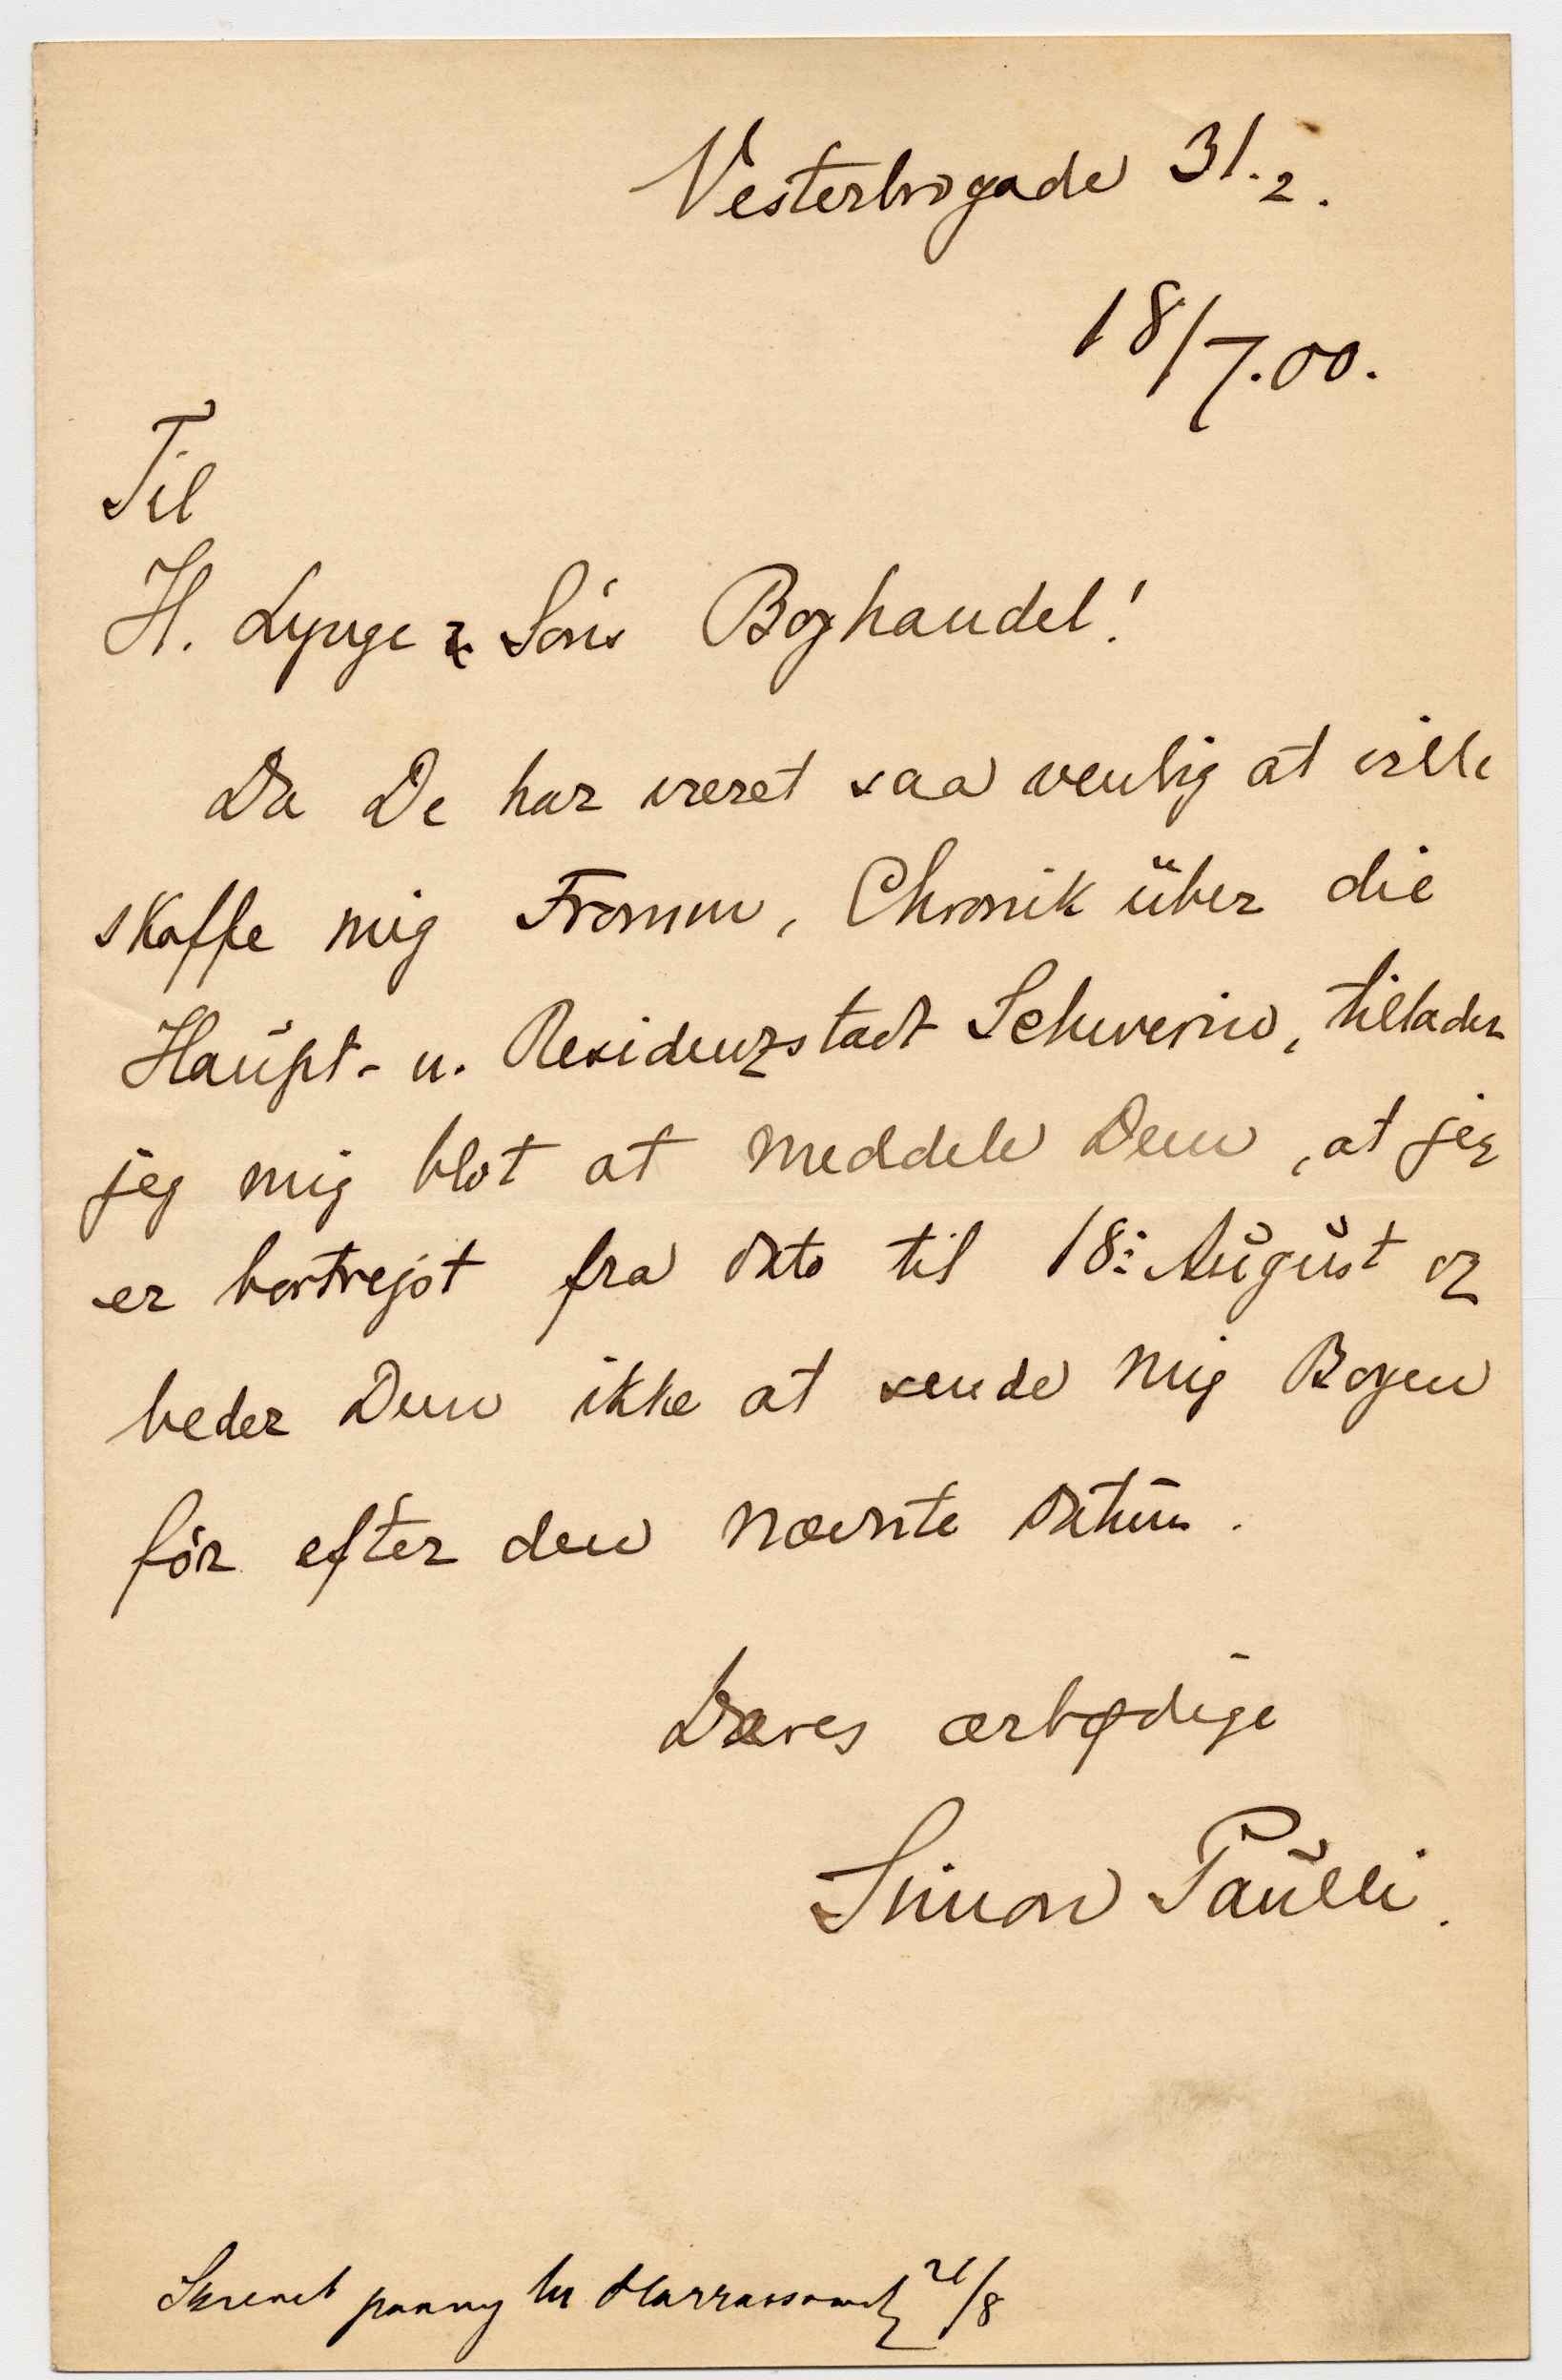 Vesterbrogade 31.2.
18/7.00.
Til
H. Lynge & Søns Boghandel!
Da De har været saa venlig at ville
skaffe mig Fromm, Chronik über die
Haupt- u. Residenzstadt Schwerin, tillader
jeg mig blot at meddele Dem, at jeg
er bortrejst fra Dato til 18: August og
beder Dem ikke at sende mig Bogen
før efter den nævnte Datum.
Deres ærbødige
Simon Paulli.
Skrevet paany til Harrassowitz 21/8